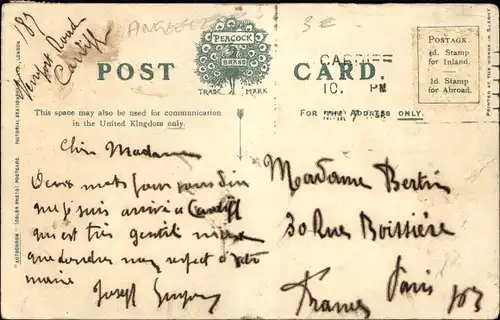 183
Newport Road
Cardiff
ANGLETERRE
3€
PEACOCK
BRAND
TRADE MARK
POST CARD.
CARDIFF
10. PM
POSTAGE
½d. Stamp
for Inland.
1d. Stamp
for Abroad.
PRINTED AT THE WORKS IN SAXONY
This space may also be used for communication
in the United Kingdom only.
FOR THE ADDRESS ONLY.
"AUTOCHROM" (COLOR PHOTO) POSTCARD.
PICTORIAL STATIONERY LONDON
Chère Madame
Deux mots pour vous dire
que je suis arrivé à Cardiff
qui est très gentil
que respect à
mairie
Joseph
Madame Bertin
30 Rue Boissière
Paris
France